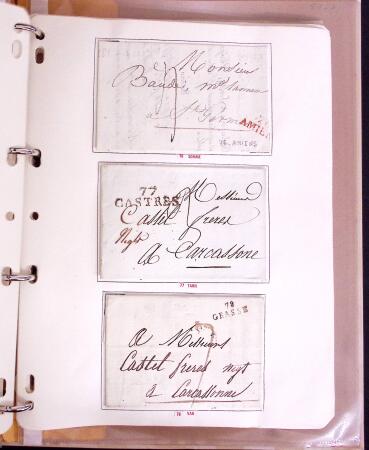 Monsieur
Baude
à St
AMIEN
76. AMIENS
76 SOMME
77
CASTRES
Messieurs
Castel freres
Negts
à Carcassone
77 TARN
78
GRASSE
A Messieurs
Castel freres negt
à Carcassonne
78 VAR